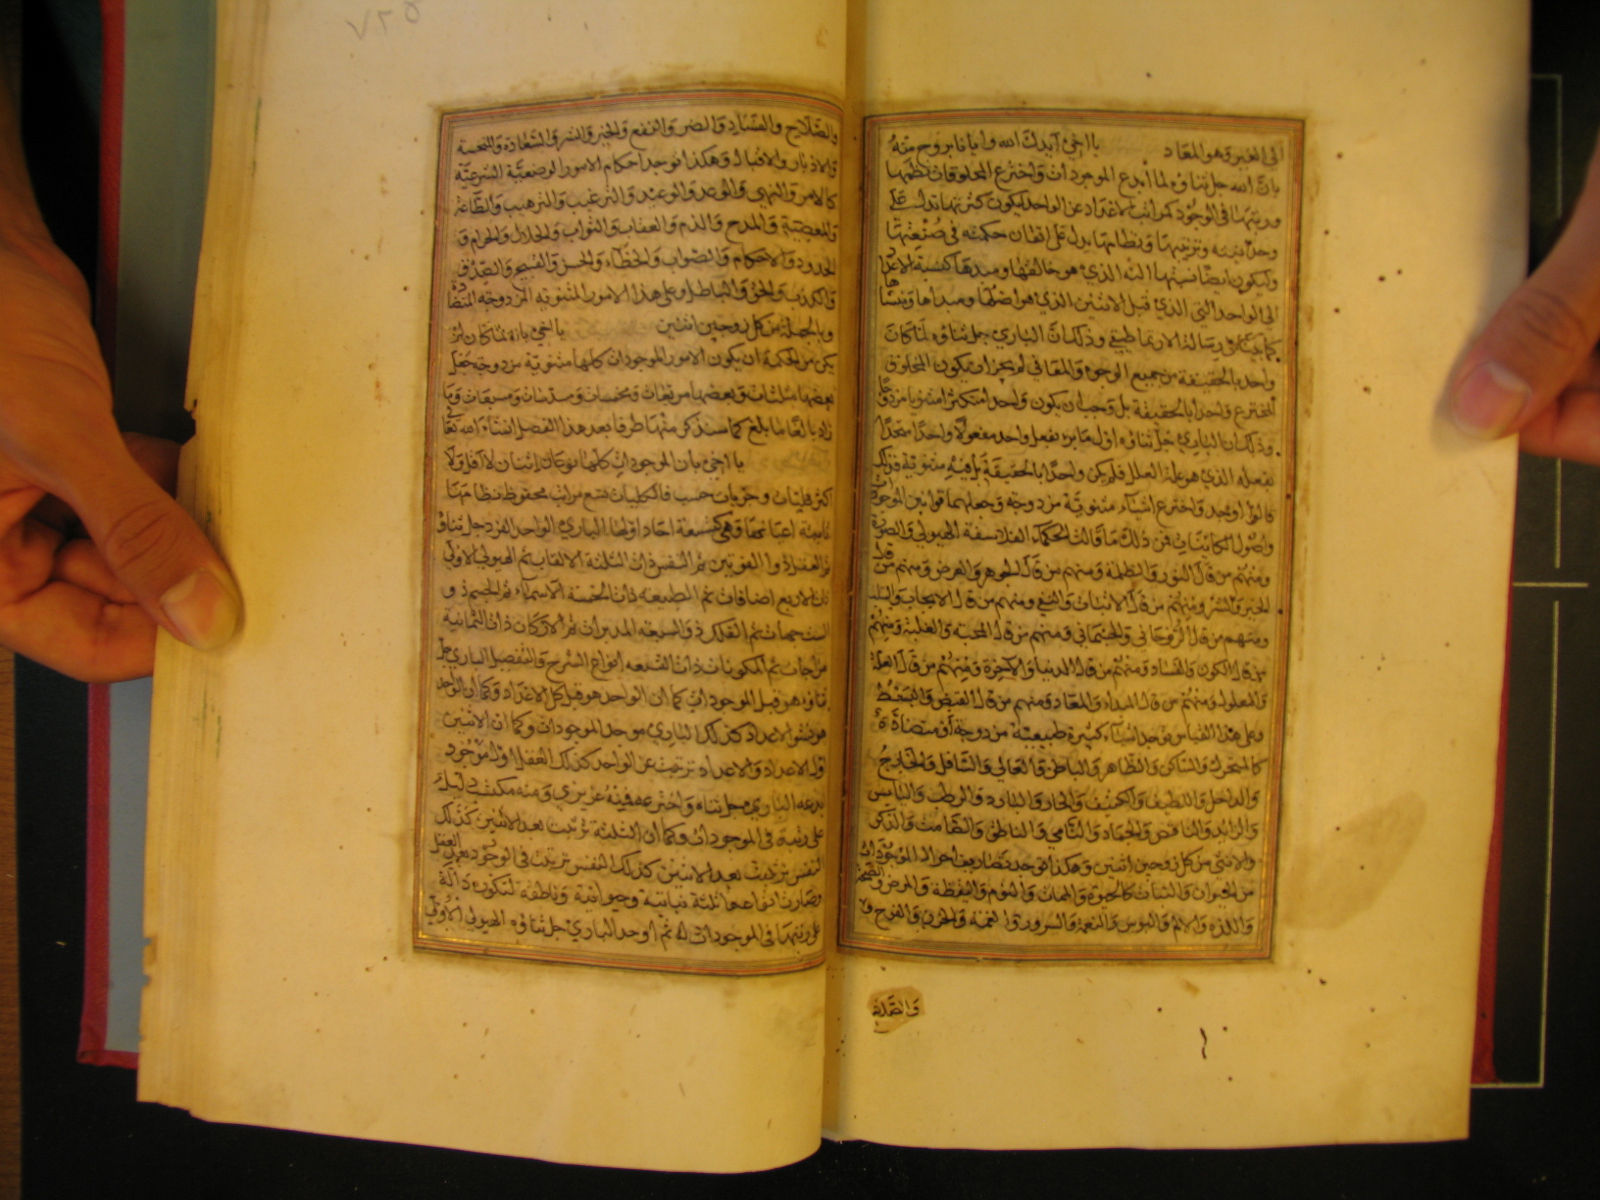 الى العبر وهو المعاد يا اخى ايدك الله وايانا بروح منه
بان الله جل ثناؤه لما ابدع الموجودات واخترع المخلوقات نظمها
ورتبها فى الوجود كمراتب الاعداد عن الواحد ليكون كثرتها تدل على
وحدانيته وترتيبها ونظامها يدل على اتقان حكمته فى صنعتها
وليكون ايضا نسبتها الى الذي هو خالقها ومبدعها كنسبة الاعداد
الى الواحد الذي قبل الاثنين الذي هو اصلها ومبداها ومنشاها
كما بينا فى رسالة الارثماطيقى وذلك ان الباري جل ثناؤه لما كان
واحدا بالحقيقة من جميع الوجوه والمعانى لم يجز ان يكون المخلوق
المخترع واحدا بالحقيقة بل وجب ان يكون واحدا متكثرا مثنويا مزدوجا
وذلك ان الباري جل ثناؤه اول ما بدء بفعل واحد مفعولا واحدا متحدا
بفعله الذي هو علة العلل فلم يكن واحدا بالحقيقة بل فيه مثنوية
قالوا اوجد واخترع اشياء مثنوية مزدوجة وجعلها قوانين الموجودات
واصول الكاينات فمن ذلك ما قالت الحكماء الفلاسفة الهيولى والصورة
ومنهم من قال النور والظلمة ومنهم من قال الجوهر والعرض ومنهم من قال
الخير والشر ومنهم من قال الاثبات والنفى ومنهم من قال الايجاب والسلب
ومنهم من قال الروحانى والجسمانى ومنهم من قال المحبة والغلبة ومنهم
من قال الكون والفساد ومنهم من قال الدنيا والاخرة ومنهم من قال العلة
والمعلول ومنهم من قال المبداء والمعاد ومنهم من قال القبض والبسط
وعلى هذا القياس توجد اشياء كثيرة طبيعية مزدوجة او متضادة
كالمتحرك والساكن والظاهر والباطن والعالى والسافل والخارج
والداخل واللطيف والكثيف والحار والبارد والرطب واليابس
والزايد والناقص والجماد والنامى والناطق والصامت والذكر
والانثى من كل زوجين اثنين وهكذا توجد تصاريف احوال الموجودات
من الحيوان والنبات كالحيوة والممات والنوم واليقظة والمرض والصحة
واللذه والالم والبوس والنعمة والسرور والحزن والفرح
والصلاح
والصلاح والفساد والضر والنفع والخير والشر والسعادة والنحسة
والادبار والاقبال وهكذا توجد احكام الامور الوضعية الشرعية
كالامر والنهى والوعد والوعيد والترغيب والترهيب والطاعة
والمعصية والمدح والذم والعقاب والثواب والحلال والحرام و
الحدود والاحكام والصواب والخطاء والحسن والقبيح والصدق
والكذب والحق والباطل وعلى هذا الامور المثنوية المزدوجة المتضادة
وبالجملة من كل زوجين اثنين يا اخى بانه لما كان لم
يكن من الحكمة ان يكون الامور الموجودات كلها مثنوية مزدوجة جعل
بعضها مثلثات وبعضها مربعات ومخمسات ومسدسات ومسبعات وما
زاد بالغا ما بلغ كما سنذكر منها طرفا بعد هذا الفصل انشاء الله تعالى
يا اخى بان الموجودات كلها نوعان اثنان لا اقل ولا
اكثر كليات وجزيات حسب فالكليات تسع مراتب محفوظ نظامها
ثابتة اعيانها وهى كتسعة احاد اولها الباري الواحد الفرد جل ثناؤه
ثم العقل ذو القوتين ثم النفس ذات الثلثة الالقاب ثم الهيولى الاولى
ذات الاربع اضافات ثم الطبيعة ذات الخمسة الاسماء ثم الجسم ذو
الست جهات ثم الفلك ذو السبعة المدبرات ثم الاركان ذات الثمانية
مزاجات ثم المكونات ذات التسعة انواع الباري جل
ثناؤه هو قبل الموجودات كما ان الواحد هو قبل كل الاعداد وكما ان الواحد
هو نشو الاعداد كذلك الباري موجد الموجودات وكما ان الاثنين
اول الاعداد والاعداد ترتبت عن الواحد كذلك العقل اول موجود
ابدعه الباري جل ثناه واخترعه فيه غريزي ومنه مكتسب دليلا
على رتبته فى الموجودات وكما ان الثلثة ترتبت بعد الاثنين كذلك
النفس ترتبت بعد الاثنين كذلك النفس ترتبت فى الوجود بعد العقل
وصارت انواعها ثلثة نباتية وحيوانية وناطقة لتكون دالة
على رتبتها فى الموجودات ثم اوجد الباري جل ثناؤه الهيولى الاولى